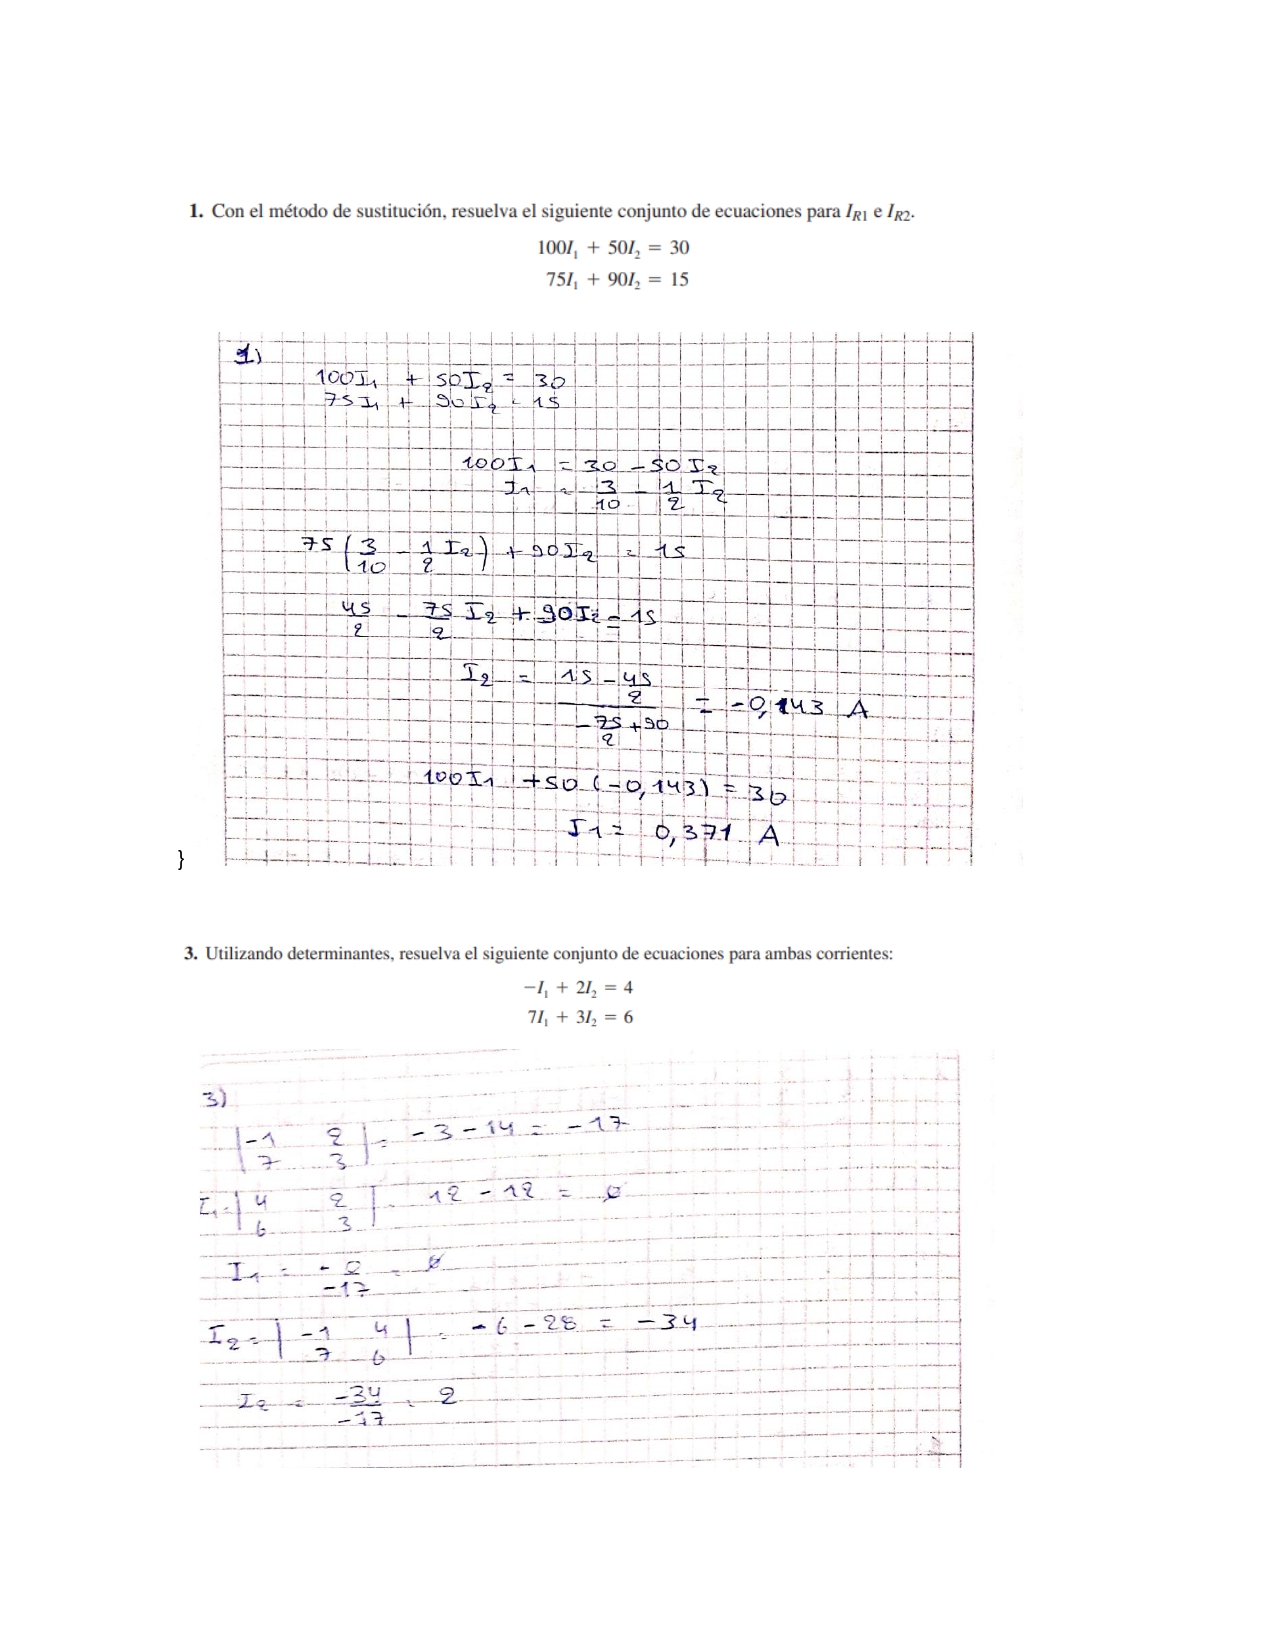 1. Con el método de sustitución, resuelva el siguiente conjunto de ecuaciones para I_R1 e I_R2.
100I₁ + 50I₂ = 30
75I₁ + 90I₂ = 15
1)
100I₁ + 50I₂ = 30
75I₁ + 90I₂ = 15
100I₁ = 30 - 50I₂
I₁ = 3/10 - 1/2 I₂
75(3/10 - 1/2 I₂) + 90I₂ = 15
45/2 - 75/2 I₂ + 90I₂ = 15
I₂ = (15 - 45/2)/(-75/2 + 90) = -0,143 A
100I₁ + 50(-0,143) = 30
I₁ = 0,371 A
}
3. Utilizando determinantes, resuelva el siguiente conjunto de ecuaciones para ambas corrientes:
−I₁ + 2I₂ = 4
7I₁ + 3I₂ = 6
3)
|-1 2|
|7 3| = -3 - 14 = -17
I₁ = |4 2|
|6 3| = 12 - 12 = 0
I₁ = -0/-17 = 0
I₂ = |-1 4|
|7 6| = -6 - 28 = -34
I₂ = -34/-17 = 2